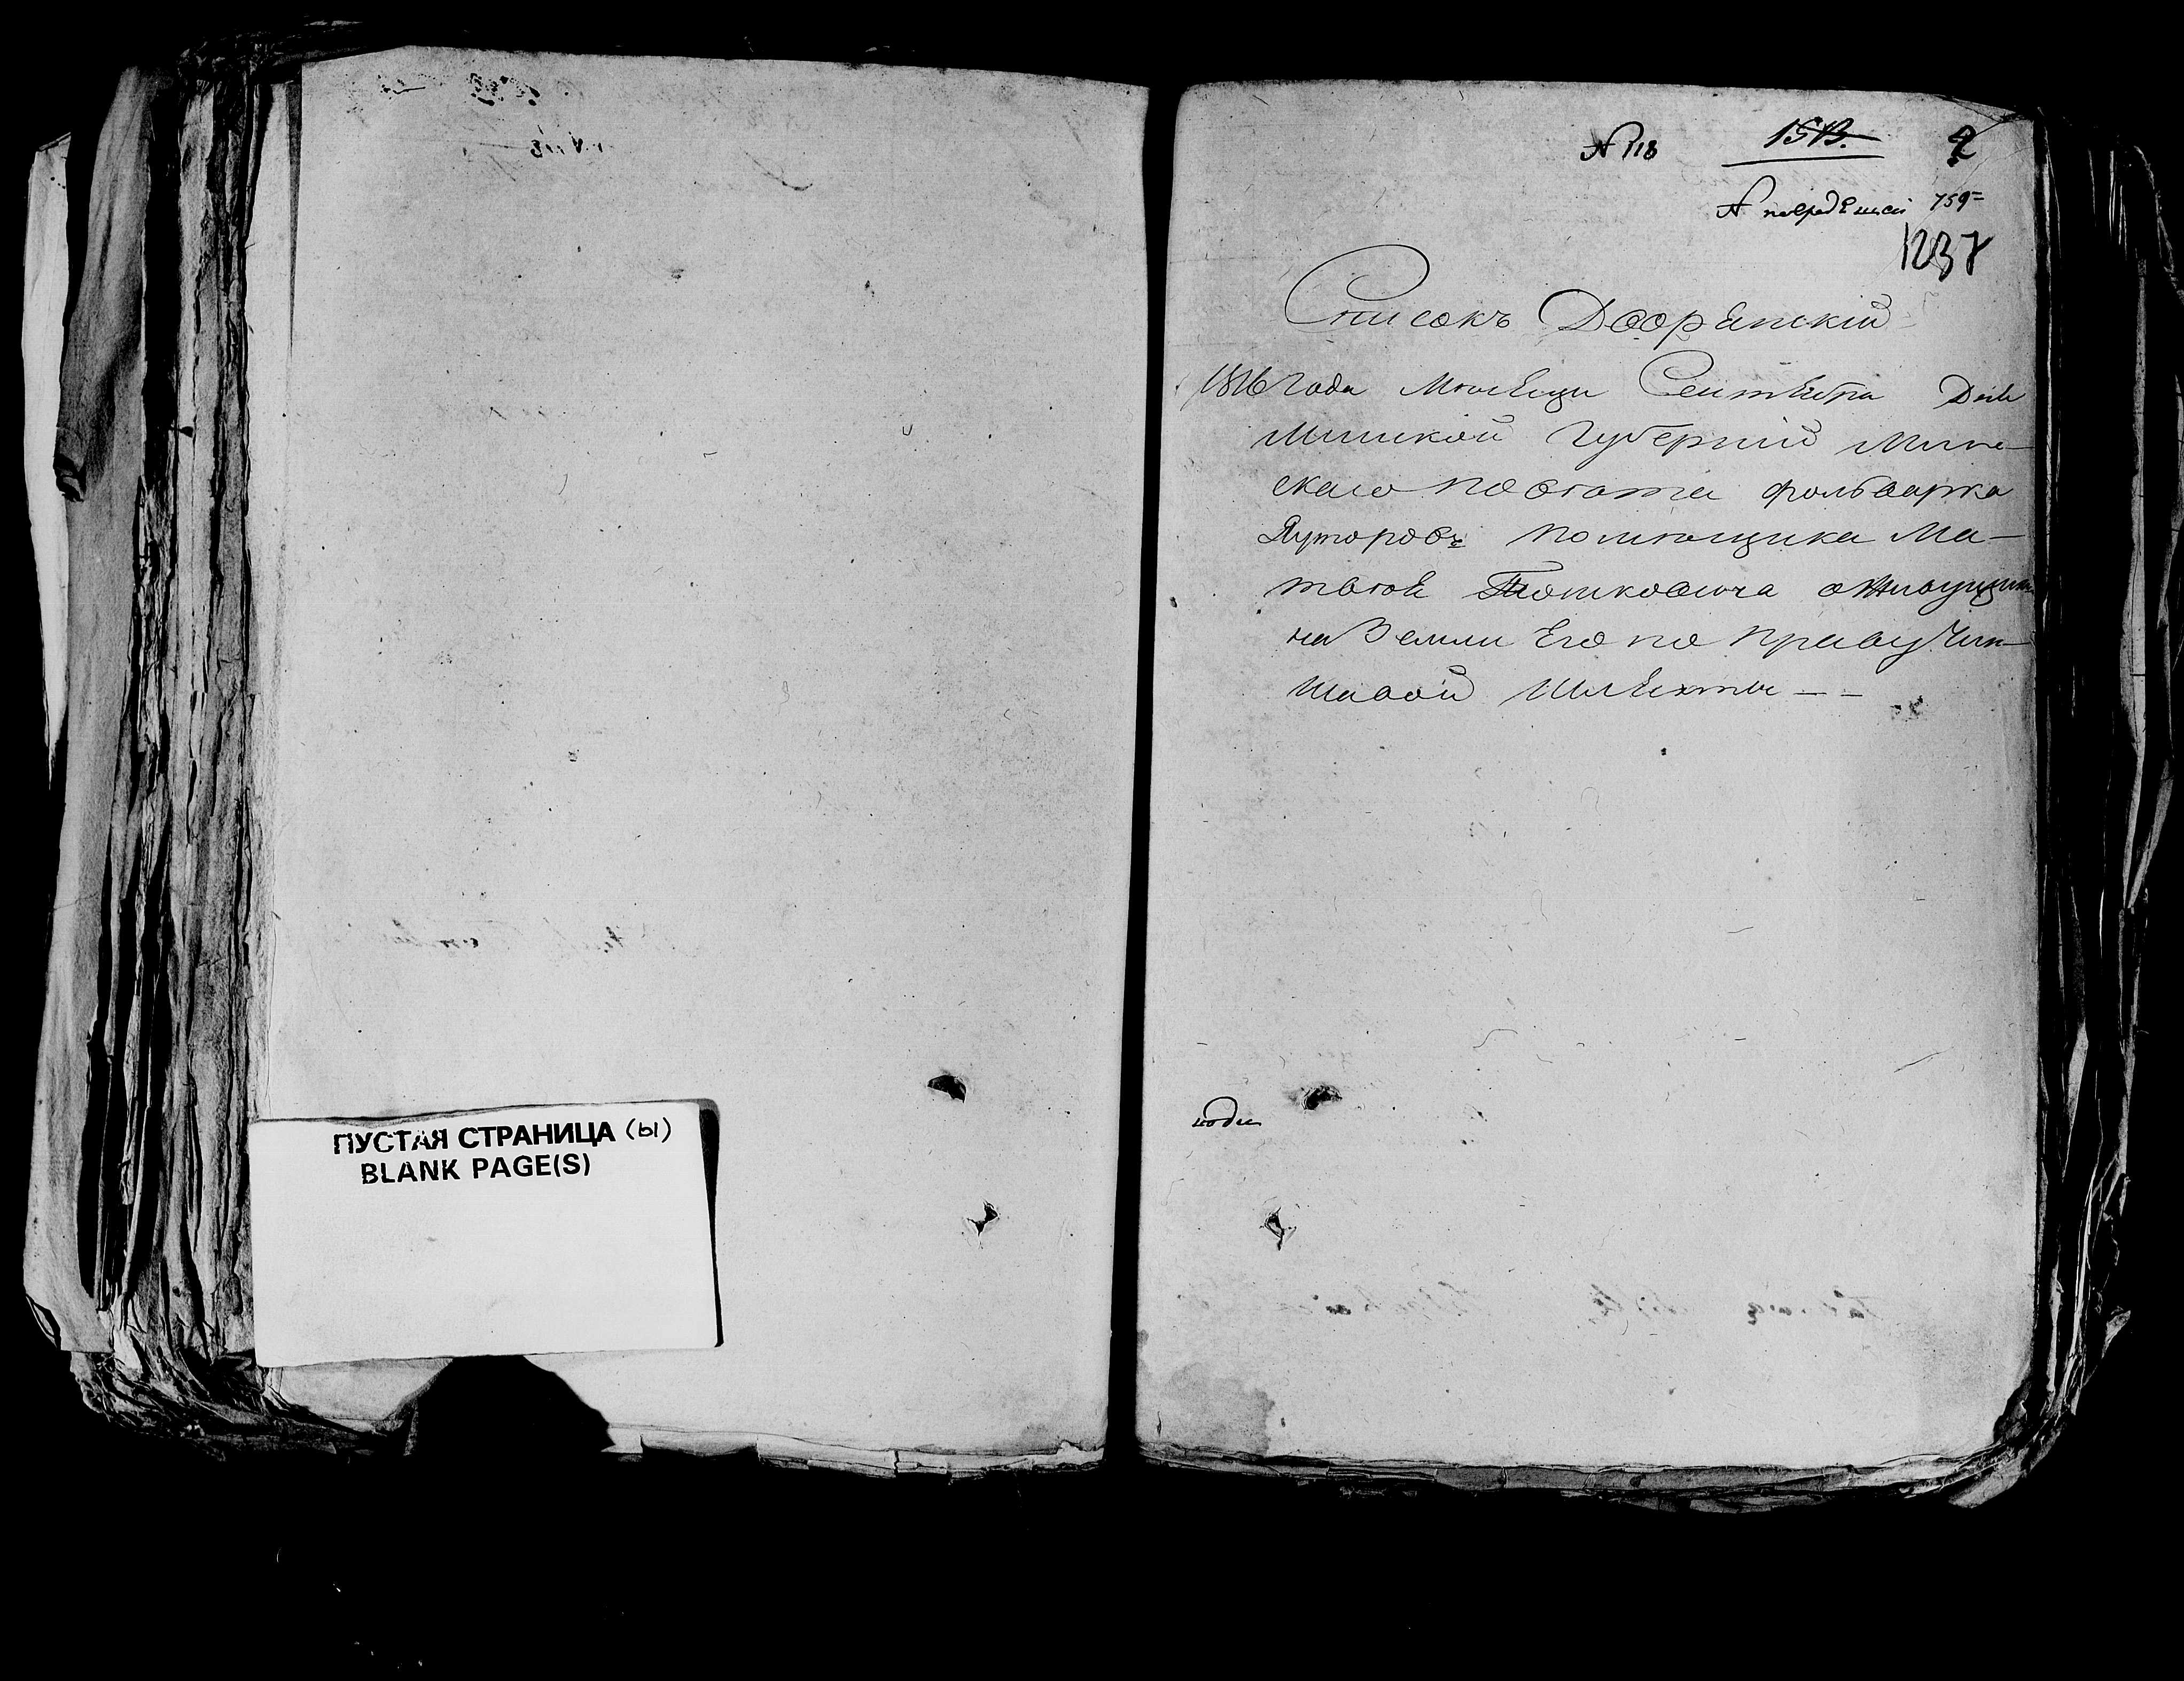 ПУСТАЯ СТРАНИЦА (Ы)
BLANK PAGE(S)
№ 118
1513.
№ 759
1237
Списокъ Дворянскій
1816 Года Месеца Сентебра Дня
Минской Губерніи Мин-
скаго Повѣта фольварка
помѣщика Ма-
твѣя Тюшковича о живущи
на Земли Его по праву Чин-
шавой Шлехты - -